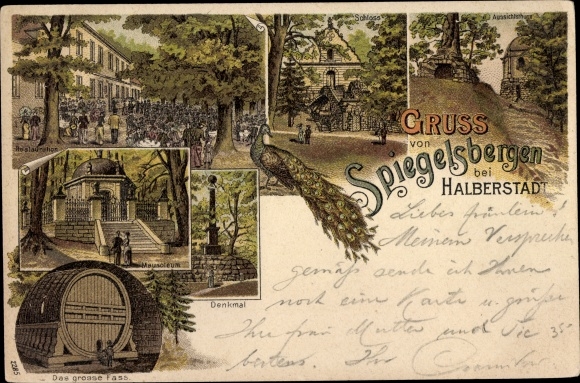 Restauration
Schloss
Aussichtsturm
GRUSS
von
Spiegelsbergen
bei
HALBERSTADT
Mausoleum
Denkmal
Das grosse Fass.
Liebes Fräulein!
Meinem Versprechen
gemäss sende ich Ihnen
noch eine Karte u. grüße
Ihre frau Mutter und Sie
bestens. Ihr